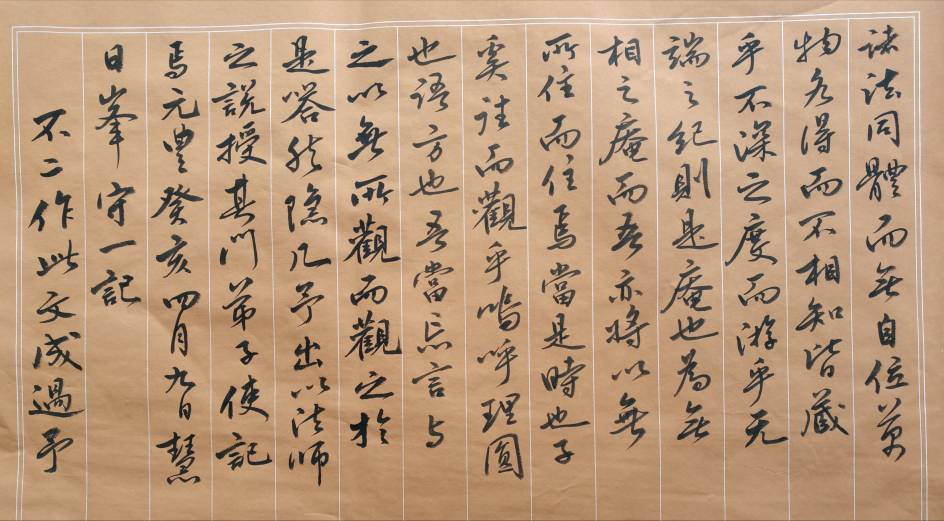 諸法同體而無自位萬
物各得而不相知皆藏
乎不深之度而游乎无
端之紀則是庵也為無
相之庵而吾亦將以無
所住而住焉當是時也子
奚往而觀乎嗚呼理圓
也語方也吾當忘言与
之以無所觀而觀之於
是嗒然隱几予出以法師
之說授其門弟子使記
焉元豊癸亥四月九日慧
日峯守一記
不二作此文成過予